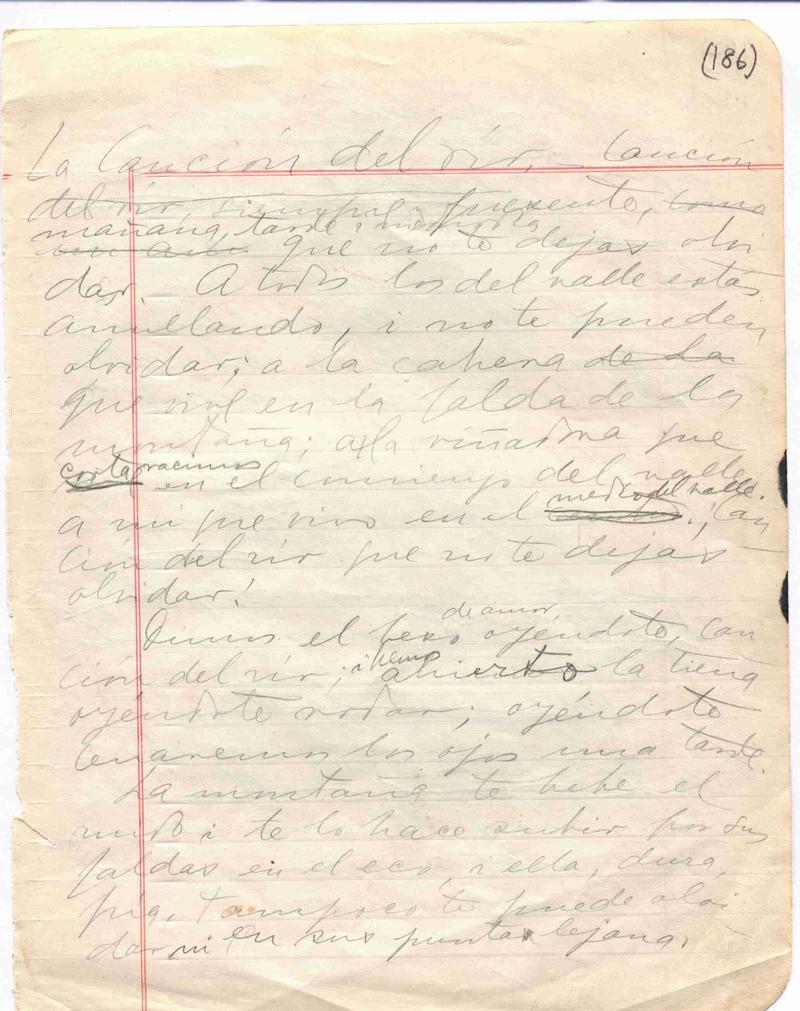 (186)
La Canción del río. – Canción
del río, siempre presente, como
mañana, tarde i
que no te dejas olvi
dar. A todos los del valle estás
arrullando, i no te pueden
olvidar; a la cabrera de la
que vive en la falda de la
montaña; a la viñadora que
corta racimos en el comienzo del valle
a mí que vivo en el medio del valle. ¡Can
ción del río que no te dejas
olvidar!
Dimos el beso de amor oyéndote, can
ción del río; i hemos abierto la tierra
oyéndote rodar; oyéndote
cerraremos los ojos una tarde.
La montaña te bebe el
ruido i te lo hace subir por sus
faldas en el eco, i ella, dura,
fría, tampoco te puede olvi
dar ni en sus puntas lejanas